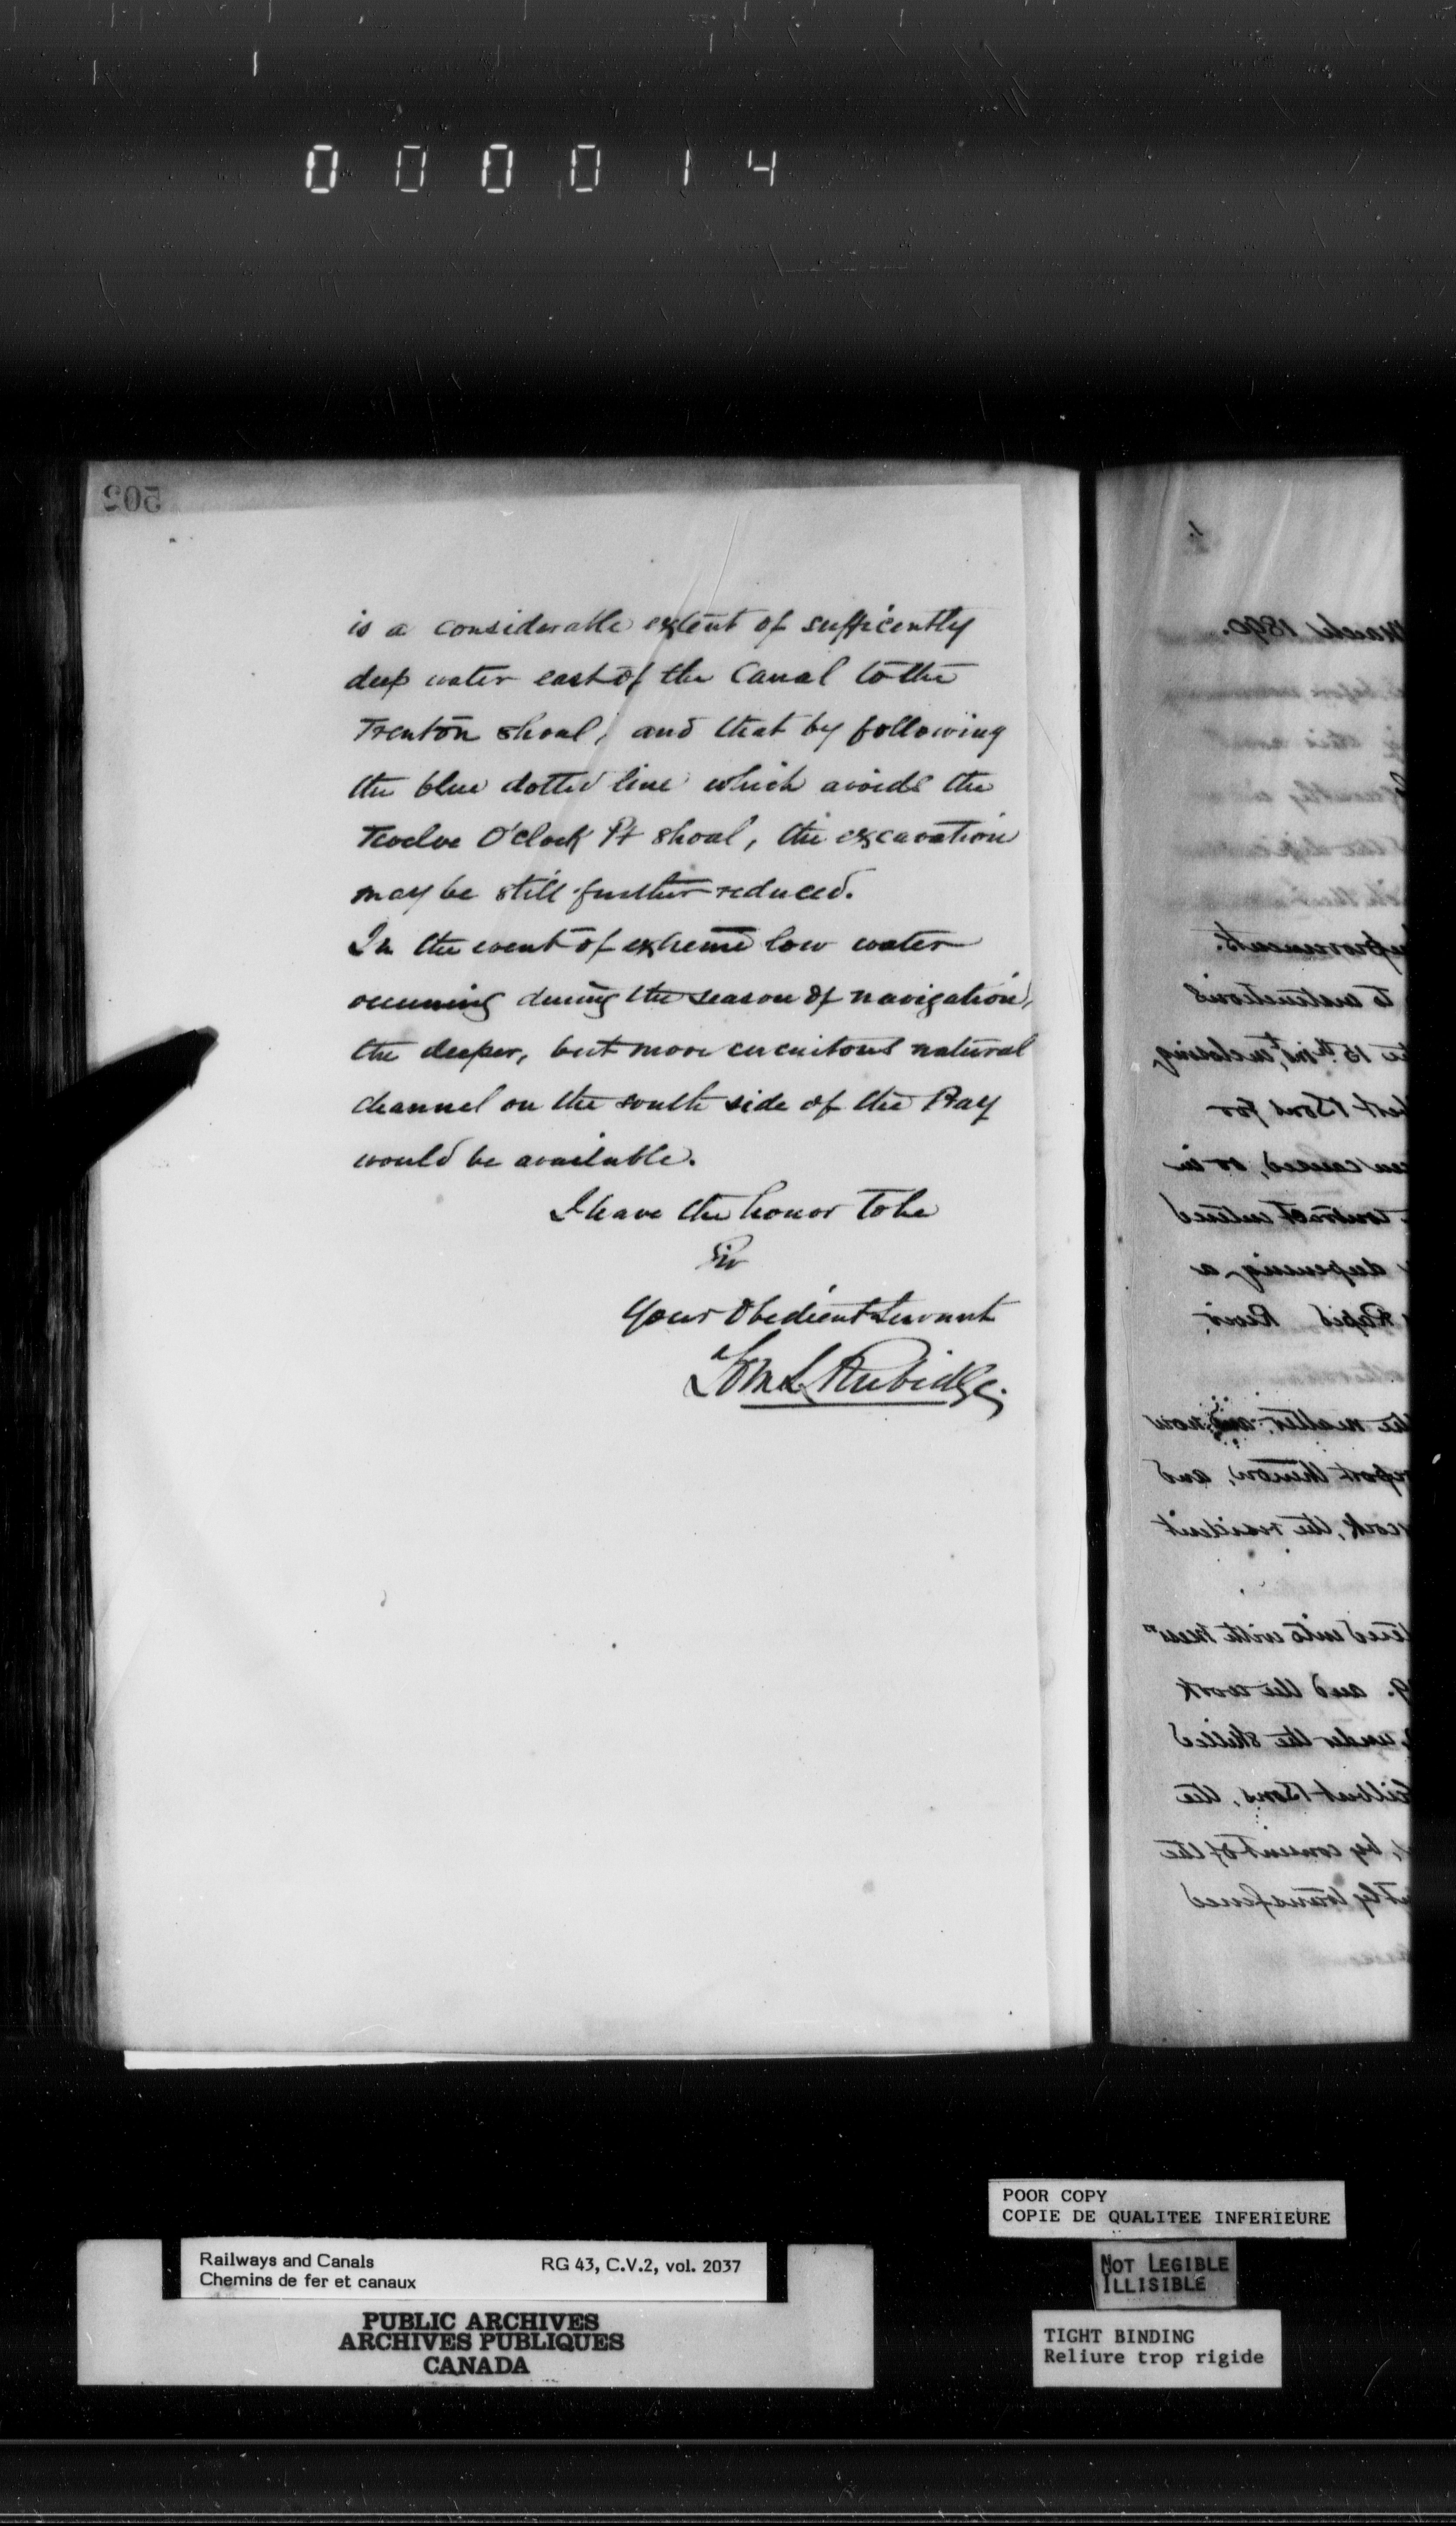 000014
502
is a considerable extent of sufficently
deep water east of the Canal to the
Trenton shoal, and that by following
the blue dotted line which avoids the
Twelve O'clock Pt shoal, the excavation
may be still further reduced.
In the event of extreme low water
occurring during the season of navigation,
the deeper, but more circuitous natural
channel on the south side of the Bay
would be available.
I have the honor to be
Sir
Your Obedient Servant
Tom S Rubidge.
1.
March 1890.
improvements.
to instructions
15th inst, enclosing
Sons for
caused, or in
contract entered
deepening a
Rapid River
the matter, now
report thereon, and
work, the resident
into with Mess
and the work
under the skilled
Gilbert & Sons, the
by consent of the
transferred
POOR COPY
COPIE DE QUALITEE INFERIEURE
NOT LEGIBLE
ILLISIBLE
TIGHT BINDING
Reliure trop rigide
Railways and Canals RG 43, C.V.2, vol. 2037
Chemins de fer et canaux
PUBLIC ARCHIVES
ARCHIVES PUBLIQUES
CANADA